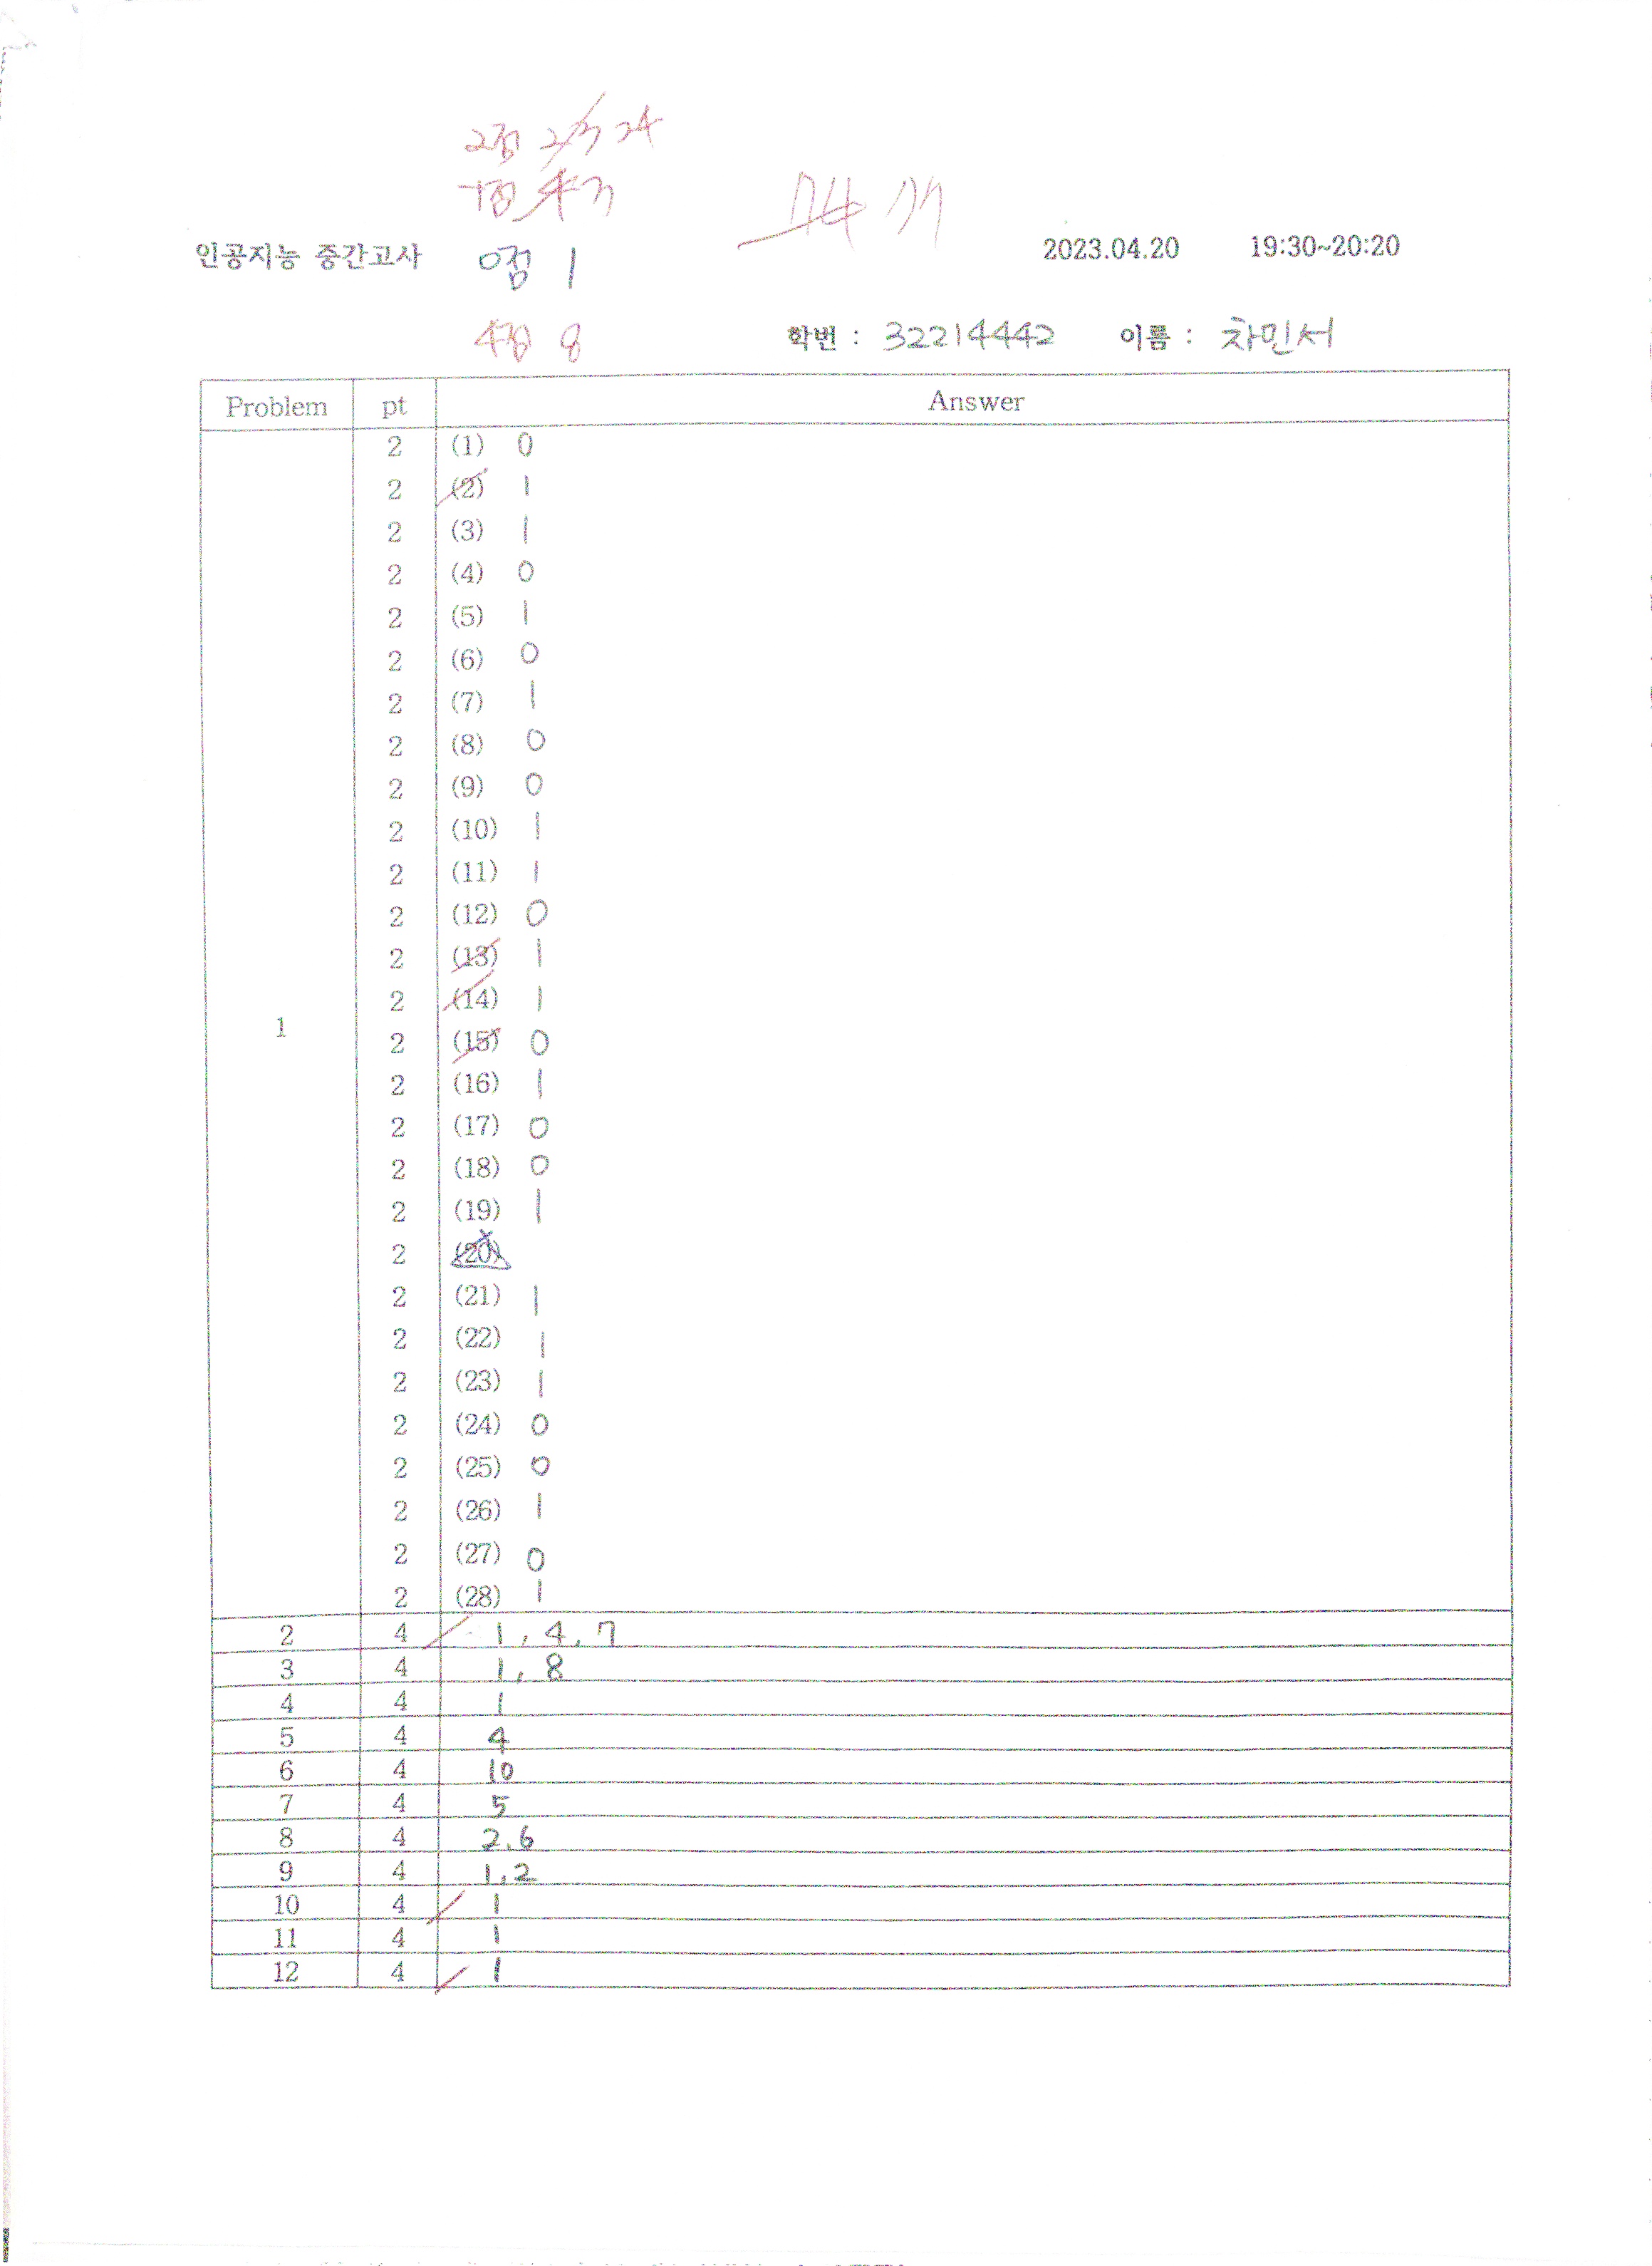 2점 24
0점 1
인공지능 중간고사 2023.04.20 19:30~20:20
4점 8
학번 : 32214442 이름 : 차민서
Problem pt Answer
2 (1) 0
2 (2) 1
2 (3) 1
2 (4) 0
2 (5) 1
2 (6) 0
2 (7) 1
2 (8) 0
2 (9) 0
2 (10) 1
2 (11) 1
2 (12) 0
2 (13) 1
2 (14) 1
1
2 (15) 0
2 (16) 1
2 (17) 0
2 (18) 0
2 (19) 1
2 (20)
2 (21) 1
2 (22) 1
2 (23) 1
2 (24) 0
2 (25) 0
2 (26) 1
2 (27) 0
2 (28) 1
2 4 1, 4, 7
3 4 1, 8
4 4 1
5 4 4
6 4 10
7 4 5
8 4 2, 6
9 4 1, 2
10 4 1
11 4 1
12 4 1